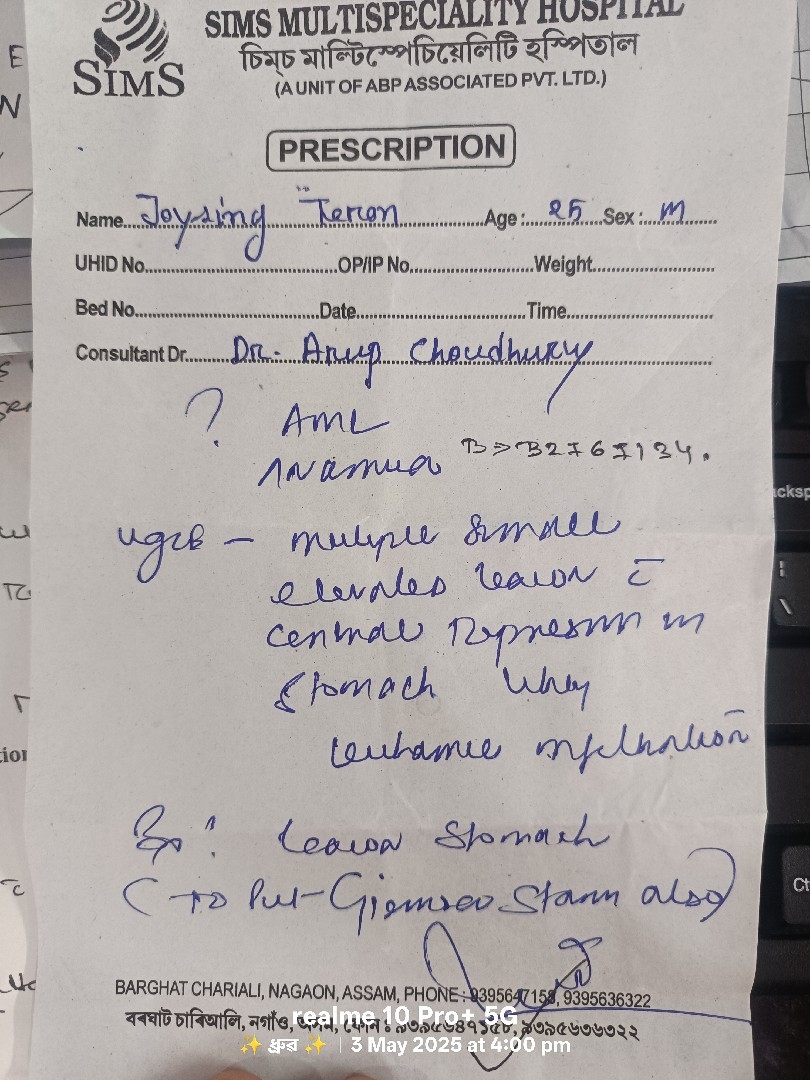 SIMS MULTISPECIALITY HOSPITAL
চিম্‌চ মাল্টিস্পেচিয়েলিটি হস্পিতাল
SIMS
(A UNIT OF ABP ASSOCIATED PVT. LTD.)
PRESCRIPTION
Name Joysing Teron Age : 25 Sex : M
UHID No. OP/IP No. Weight
Bed No. Date Time
Consultant Dr. Dr. Arup Choudhury
? AML
Anamia
UGIE - multiple small
elevated lesion c̄
central depression in
stomach likely
leukamic infiltration
Bx: lesion stomach
(To Put Giemsa Stain also)
BARGHAT CHARIALI, NAGAON, ASSAM, PHONE : 9395647158, 9395636322
বৰঘাট চাৰিআলি, নগাঁও, অসম, ফোন : ৯৩৯৫৬৪৭১৫৮, ৯৩৯৫৬৩৬৩২২
realme 10 Pro+ 5G
✨ ধ্ৰুৱ ✨ | 3 May 2025 at 4:00 pm